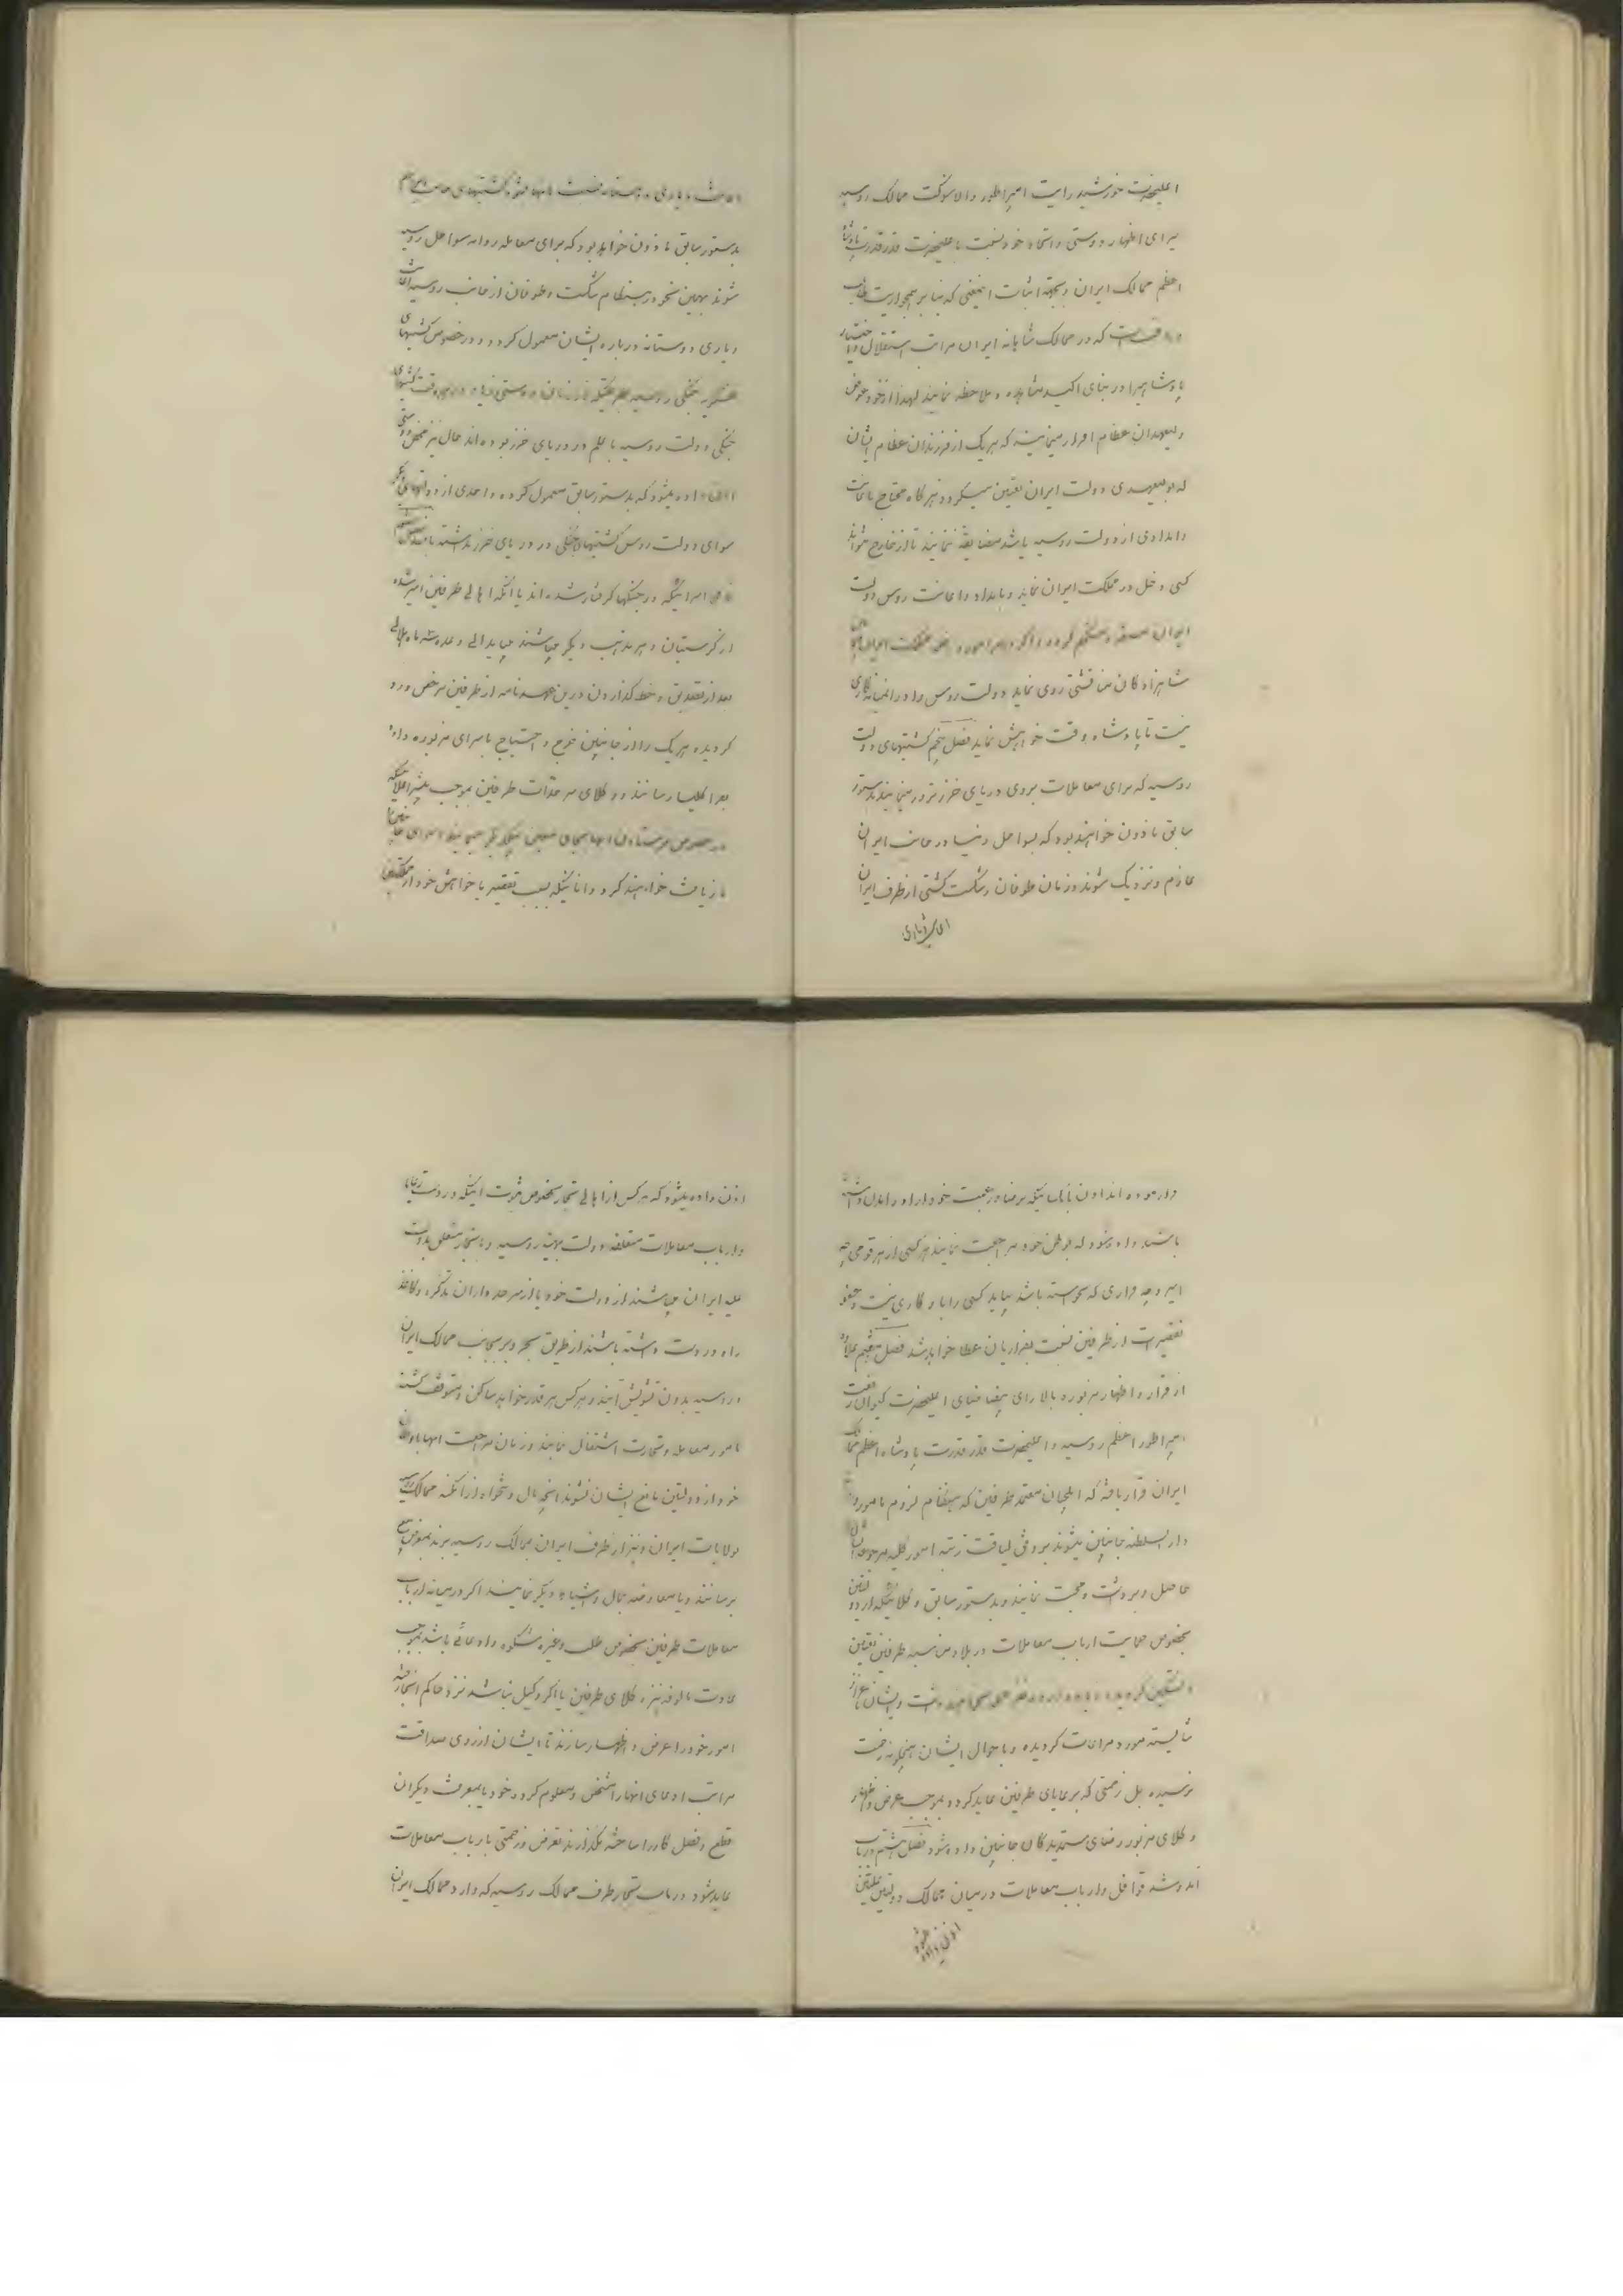 اعلیحضرت خورشید رایت امپراطور والا شوکت ممالک روسیه
برای اظهار دوستی و اتحاد خود نسبت باعلیحضرت قدر قدرت پادشاه
اعظم ممالک ایران و بجهة اثبات اینمعنی که بنا بر همجواریت طالب
و راغب است که در ممالک شاهانه ایران مراتب استقلال و اختیار
پادشاهی را در بنای اکید مشاهده و ملاحظه نمایند لهذا از خود و عوض
ولیعهدان عظام اقرار مینمایند که هر یک از فرزندان عظام ایشان
که بولیعهدی دولت ایران تعیین میگردد هر گاه محتاج باعانت
و امدادی از دولت روسیه باشد مضایقه ننمایند تا از خارج نتواند
کسی دخل در مملکت ایران نماید و بامداد و اعانت روس دولت
ایران مستقر و مستحکم گردد و اگر در سر امور داخله مملکت ایران
شاهزادگان مناقشتی روی نماید دولت روس را در آنمیانه کاری
نیست تا پادشاه وقت خواهش نماید فصل پنجم کشتیهای دولت
روسیه که برای معاملات بروی دریای خزر تردد مینمایند بدستور
سابق مأذون خواهند بود که بسواحل و بنادر جانب ایران
عازم و نزدیک شوند و زمان طوفان و شکست کشتی از طرف ایران
اعانت و یاری
اعانت و یاری دوستانه نسبت بآنها بشود کشتیهای جانب ایران هم
بدستور سابق مأذون خواهند بود که برای معامله روانه سواحل روسیه
شوند بهمین نحو در هنگام شکست و طوفان از جانب روسیه اعانت
و یاری دوستانه درباره ایشان معمول گردد و در خصوص کشتیهای
عسکریه جنگی روسیه بطریقیکه در زمان دوستی و یا در هر وقت کشتیهای
جنگی دولت روسیه با علم در دریای خزر بوده اند حال نیز محض دوستی
اذن داده میشود که بدستور سابق معمول گردد و احدی از دولتهای دیگر
سوای دولت روس کشتیهای جنگی در دریای خزر نداشته باشند فصل ششم
تمام اسرائیکه در جنگها گرفتار شده اند یا آنکه اهالی طرفین اسیر شده
از کرستیان و هر مذهب دیگر میباشند میباید الی وعده سه ماه هلالی
بعد از تصدیق و خط گذاردن درین عهدنامه از طرفین مرخص و رد
گردیده هر یک را از جانبین خرج و مایحتاج باسرای مزبوره داده
بقرا کلیسا رسانند و وکلای سرحدات طرفین بموجب نشر اعلامیکه
در خصوص فرستادن آنها بجای معین بیکدیگر مینمایند اسرای جانبین را
بازیافت خواهند کرد و آنانیکه بسبب تقصیر یا خواهش خود از مملکتین
فرار نموده اند اذن بآنانیکه برضا و رغبت خود اراده آمدن داشته
باشند داده شود که بوطن خود مراجعت نمایند و هر کس از هر قومی چه
اسیر و چه فراری که نخواسته باشد بیاید کسی را با او کاری نیست و عفو
تقصیرات از طرفین نسبت بفراریان عطا خواهد شد فصل هفتم علاوه
از قرار و اظهار مزبوره بالا رای بیضا ضیای اعلیحضرت کیوان رفعت
امپراطور اعظم روسیه و اعلیحضرت قدر قدرت پادشاه اعظم ممالک
ایران قرار یافته که ایلچیان معتمد طرفین که هنگام لزوم مامور
دار السلطنه جانبین میشوند بر وفق لیاقت رتبه امور کلیه مرجوعه آن
حاصل و پرداخت و محبت نمایند و بدستور سابق وکلائیکه از دولتین
بخصوص حمایت ارباب معاملات در بلاد مناسبه طرفین تعیین
شایسته مورد مراعات گردیده و باحوال ایشان هیچگونه زحمت
نرسیده بل زحمتی که برعایای طرفین عاید گردد بموجب عرض و اظهار
وکلای مزبور رضای ستمدیدگان جانبین داده شود فصل هشتم در باب
آمد و شد قوافل و ارباب معاملات در میان ممالک دولتین علیتین
اذن داده میشود
اذن داده میشود که هر کس از اهالی تجار بخصوص ثبوت اینکه دوست رعایا
و ارباب معاملات متعلقه دولت بهیه روسیه و یا تجار متعلق بدولت
علیه ایران میباشند از دولت خود یا از سرحدداران تذکره و کاغذ
راه در دست داشته باشند از طریق بحر و بر بجانب ممالک ایران
و روسیه بدون تشویش آیند و هر کس هر قدر خواهد ساکن و متوقف گشته
بامور معامله و تجارت اشتغال نمایند و زمان مراجعت آنها باوطان
خود از دولتین مانع ایشان نشوند آنچه مال و تنخواه از امکنه ممالک روسیه
بولایات ایران و نیز از طرف ایران بممالک روسیه برند بمعرض بیع
برسانند و یا معاوضه بمال و اشیاء دیگر نمایند اگر در میانه ارباب
معاملات طرفین بخصوص طلب و غیره شکوه و ادعائی باشد بموجب
عادت مالوفه نزد وکلای طرفین یا اگر وکیل نباشد نزد حاکم آنجا رفته
امور خود را عرض و اظهار سازند تا ایشان از روی صداقت
مراتب ادعای آنها را مشخص و معلوم کرده خود یا بمعرفت دیگران
قطع و فصل کار را ساخته نگذارند تعرض و زحمتی بارباب معاملات
عاید شود در باب تجار طرف ممالک روسیه که وارد ممالک ایران